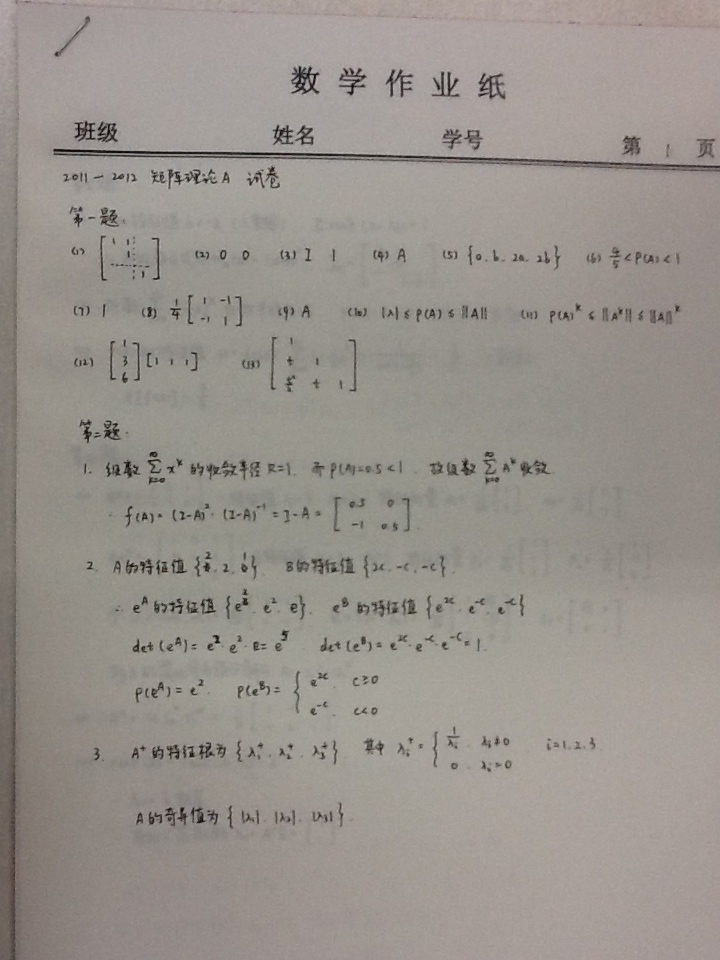 数学作业纸
班级 姓名 学号 第 1 页
2011-2012 矩阵理论A 试卷
第一题:
(1) [1 1; 1; 1] (2) 0 0 (3) I 1 (4) A (5) {a, b, 2a, 2b} (6) 4/5 < ρ(A) < 1
(7) 1 (8) 1/4 [1 -1; -1 1] (9) A (10) |λ| ≤ ρ(A) ≤ ||A|| (11) ρ(A)^k ≤ ||A^k|| ≤ ||A||^k
(12) [1; 3; 6] [1 1 1] (13) [1; t 1; t²/2 t 1]
第二题:
1. 级数 ∑_{k=0}^∞ x^k 的收敛半径 R=1. 而 ρ(A)=0.5<1. 故级数 ∑_{k=0}^∞ A^k 收敛
∴ f(A) = (I-A)² · (I-A)^{-1} = I-A = [0.5 0; -1 0.5]
2. A的特征值 {2, 2, 1}. B的特征值 {2c, -c, -c}.
∴ e^A 的特征值 {e^2, e^2, e}. e^B 的特征值 {e^{2c}, e^{-c}, e^{-c}}
det(e^A) = e^2 · e^2 · e = e^5 det(e^B) = e^{2c} · e^{-c} · e^{-c} = 1.
ρ(e^A) = e^2. ρ(e^B) = { e^{2c}, c≥0
e^{-c}, c<0
3. A^+ 的特征根为 {λ₁^+, λ₂^+, λ₃^+} 其中 λᵢ^+ = { 1/λᵢ, λᵢ≠0 i=1,2,3.
0, λᵢ=0
A的奇异值为 {|λ₁|, |λ₂|, |λ₃|}.